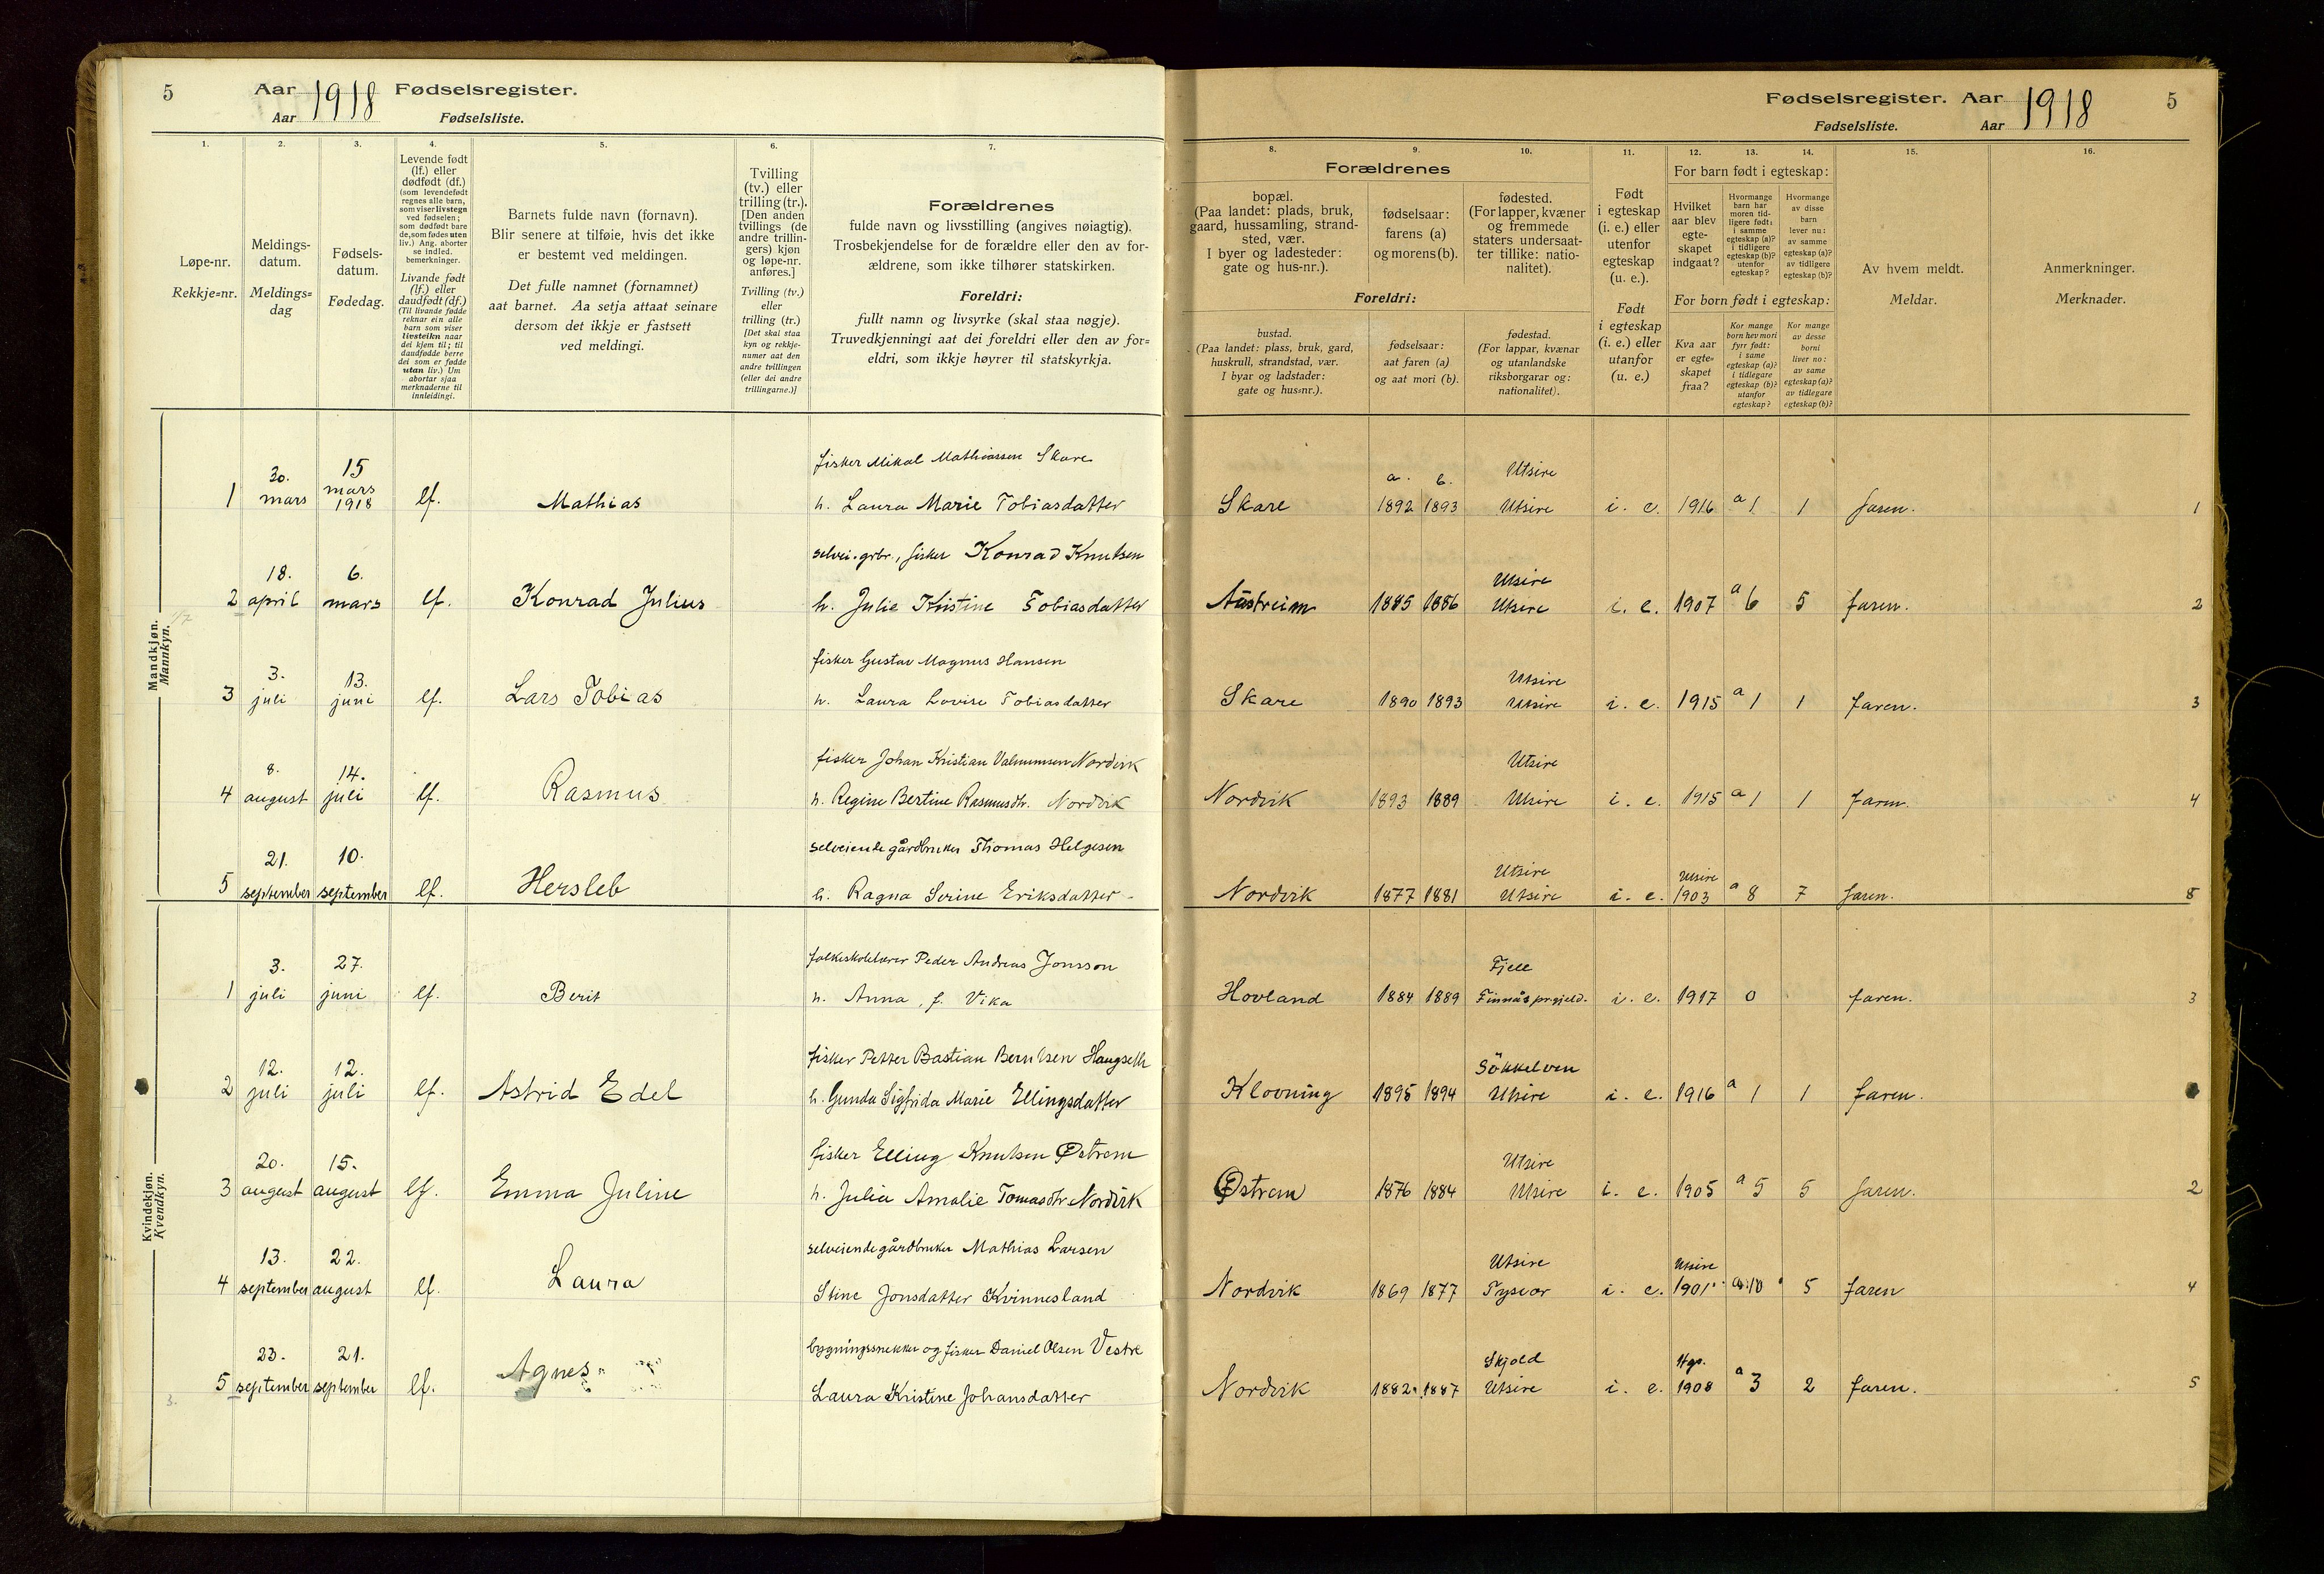 5 Aar 1918 Fødselsregister.
Aar Fødselsliste.
1. 2. 3. 4. 5. 6. 7.
Løpe-nr.
Rekkje=nr.
Meldings-
datum.
Meldings=
dag
Fødsels-
datum.
Fødedag.
Levende født
(lf.) eller
dødfødt (df.)
(som levendefødt
regnes alle barn,
som viser livstegn
ved fødselen;
som dødfødt bare
de, som fødes uten
liv.) Ang. aborter
se indled.
bemerkninger.
Livande født
(lf.) eller
daudfødt (df.)
(Til livande fødde
reknar ein alle
barn som viser
livsteikn naar
dei kjem til; til
daudfødde berre
dei som er fødde
utan liv.) Um
abortar sjaa
merknaderne til
innleidingi.
Barnets fulde navn (fornavn).
Blir senere at tilføie, hvis det ikke
er bestemt ved meldingen.
Det fulle namnet (fornamnet)
aat barnet. Aa setja attaat seinare
dersom det ikkje er fastsett
ved meldingi.
Tvilling
(tv.) eller
trilling (tr.).
[Den anden
tvillings (de
andre trillin-
gers) kjøn
og løpe-nr.
anføres.]
Tvilling (tv.)
eller
trilling (tr.)
[Det skal staa
kyn og rekkje-
numer aat den
andre tvillingen
(eller dei andre
trillingarne.)]
Forældrenes
fulde navn og livsstilling (angives nøiagtig).
Trosbekjendelse for de forældre eller den av for-
ældrene, som ikke tilhører statskirken.
Foreldri:
fullt namn og livsyrke (skal staa nøgje).
Truvedkjenningi aat dei foreldri eller den av for=
eldri, som ikkje høyrer til statskyrkja.
Mandkjøn.
Mannkyn.
30. 15 fisker Mikal Mathiassen Skare
1 mars mars 1918 lf. Mathias h. Laura Marie Tobiasdatter
selvei. grbr., fisker Konrad Knutsen
18. 6.
2 april mars lf. Konrad Julius h. Julie Kristine Tobiasdatter
fisker Gustav Magnus Hansen
3. 13.
3 juli juni lf. Lars Tobias h. Laura Lovise Tobiasdatter
fisker Johan Kristian Valnumsen Nordvik
8. 14.
4 august juli lf. Rasmus h. Regine Bertine Rasmusdtr. Nordvik
selveiende gårdbruker Thomas Helgesen
21. 10.
5 september september lf. Hersleb h. Ragna Serine Eriksdatter
Kvindekjøn.
Kvendkyn.
folkeskolelærer Peder Andreas Jonsson
3. 27.
1 juli juni lf. Berit h. Anna, f. Vika
fisker Petter Bastian Berntsen Haugseth
12. 12.
2 juli juli lf. Astrid Edel h. Gunda Sigfrida Marie Ellingsdatter
fisker Elling Knutsen Østrem
20. 15.
3 august august lf. Emma Juline h. Julia Amalie Tomasdtr Nordvik
selveiende gårdbruker Mathias Larsen
13. 22.
4 september august lf. Laura Stine Jonsdatter Kvinnesland
bygningssnekker og fisker Daniel Olsen Vestre
23. 21.
5 september september lf. Agnes Laura Kristine Johansdatter
Fødselsregister. Aar 1918 5
Fødselsliste. Aar
8. 9. 10. 11. 12. 13. 14. 15. 16.
Forældrenes
bopæl.
(Paa landet: plads, bruk,
gaard, hussamling, strand-
sted, vær.
I byer og ladesteder:
gate og hus-nr.).
fødselsaar:
farens (a)
og morens (b).
fødested.
(For lapper, kvæner
og fremmede
staters undersaat-
ter tillike: natio-
nalitet).
Foreldri:
bustad.
(Paa landet: plass, bruk, gard,
huskrull, strandstad, vær.
I byar og ladstader:
gate og hus=nr.).
fødselsaar:
aat faren (a)
og aat mori (b).
fødestad.
(For lappar, kvænar
og utanlandske
riksborgarar og:
nationalitet).
Født
i egteskap
(i. e.) eller
utenfor
egteskap
(u. e.).
Født
i egteskap
(i. e.) eller
utanfor
(u. e.)
For barn født i egteskap:
Hvilket
aar blev
egte-
skapet
indgaat?
Hvormange
barn har
moren tid-
ligere født:
i samme
egteskap (a)?
i tidligere
egteskap (b)?
utenfor
egteskap?
Hvormange
av disse
barn
lever nu:
av samme
egteskap (a)?
av tidligere
egteskap (b)?
For born født i egteskap:
Kva aar
er egte=
skapet
fraa?
Kor mange
born hev mori
fyrr født:
i same
egteskap (a)?
i tidlegare
egteskap (b)?
utanfor
egteskap?
Kor mange
av desse
borni
liver no:
av same
egteskap (a)?
av tidlegare
egteskap (b)?
Av hvem meldt.
Meldar.
Anmerkninger.
Merknader.
a. b. Utsire
Skare 1892 1893 Utsire i. e. 1916 a 1 1 faren. 1
Utsire
Austreim 1885 1886 Utsire i. e. 1907 a 6 5 faren. 2
Utsire
Skare 1890 1893 Utsire i. e. 1915 a 1 1 faren. 3
Utsire
Nordvik 1893 1889 Utsire i. e. 1915 a 1 1 faren. 4
Utsire Utsire
Nordvik 1877 1881 Utsire i. e. 1903 a 8 7 faren. 5
Fjell
Hovland 1884 1889 Finnås prgjeld. i. e. 1917 0 faren. 3
Sökkelven
Klovning 1895 1894 Utsire i. e. 1916 a 1 1 faren.
Utsire
Østrem 1876 1884 Utsire i. e. 1905 a 5 5 faren. 2
Utsire Utsire
Nordvik 1869 1877 Tysvær i. e. 1901 a. 10 5 faren 4
Skjold Hgs.
Nordvik 1882 1887 Utsire i. e. 1908 a 3 2 faren. 5